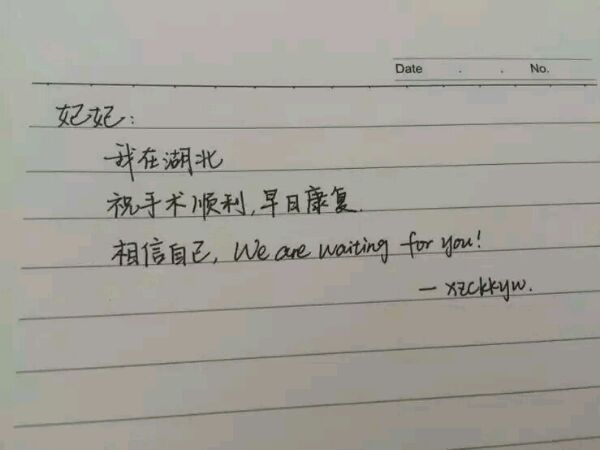 Date . . No.
妃妃:
我在湖北
祝手术顺利,早日康复.
相信自己, We are waiting for you!
— xzckkyw.